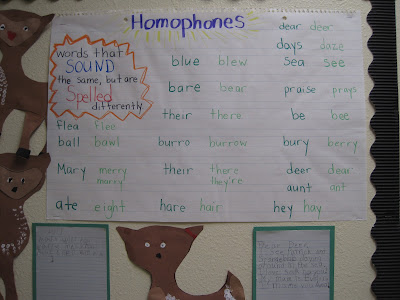 Homophones
words that
SOUND
the same, but are
Spelled
differently
flea flee
ball bawl
Mary merry
marry
ate eight
blue blew
bare bear
their there
burro burrow
their there
they're
hare hair
dear deer
days daze
sea see
praise prays
be bee
bury berry
deer dear
aunt ant
hey hay